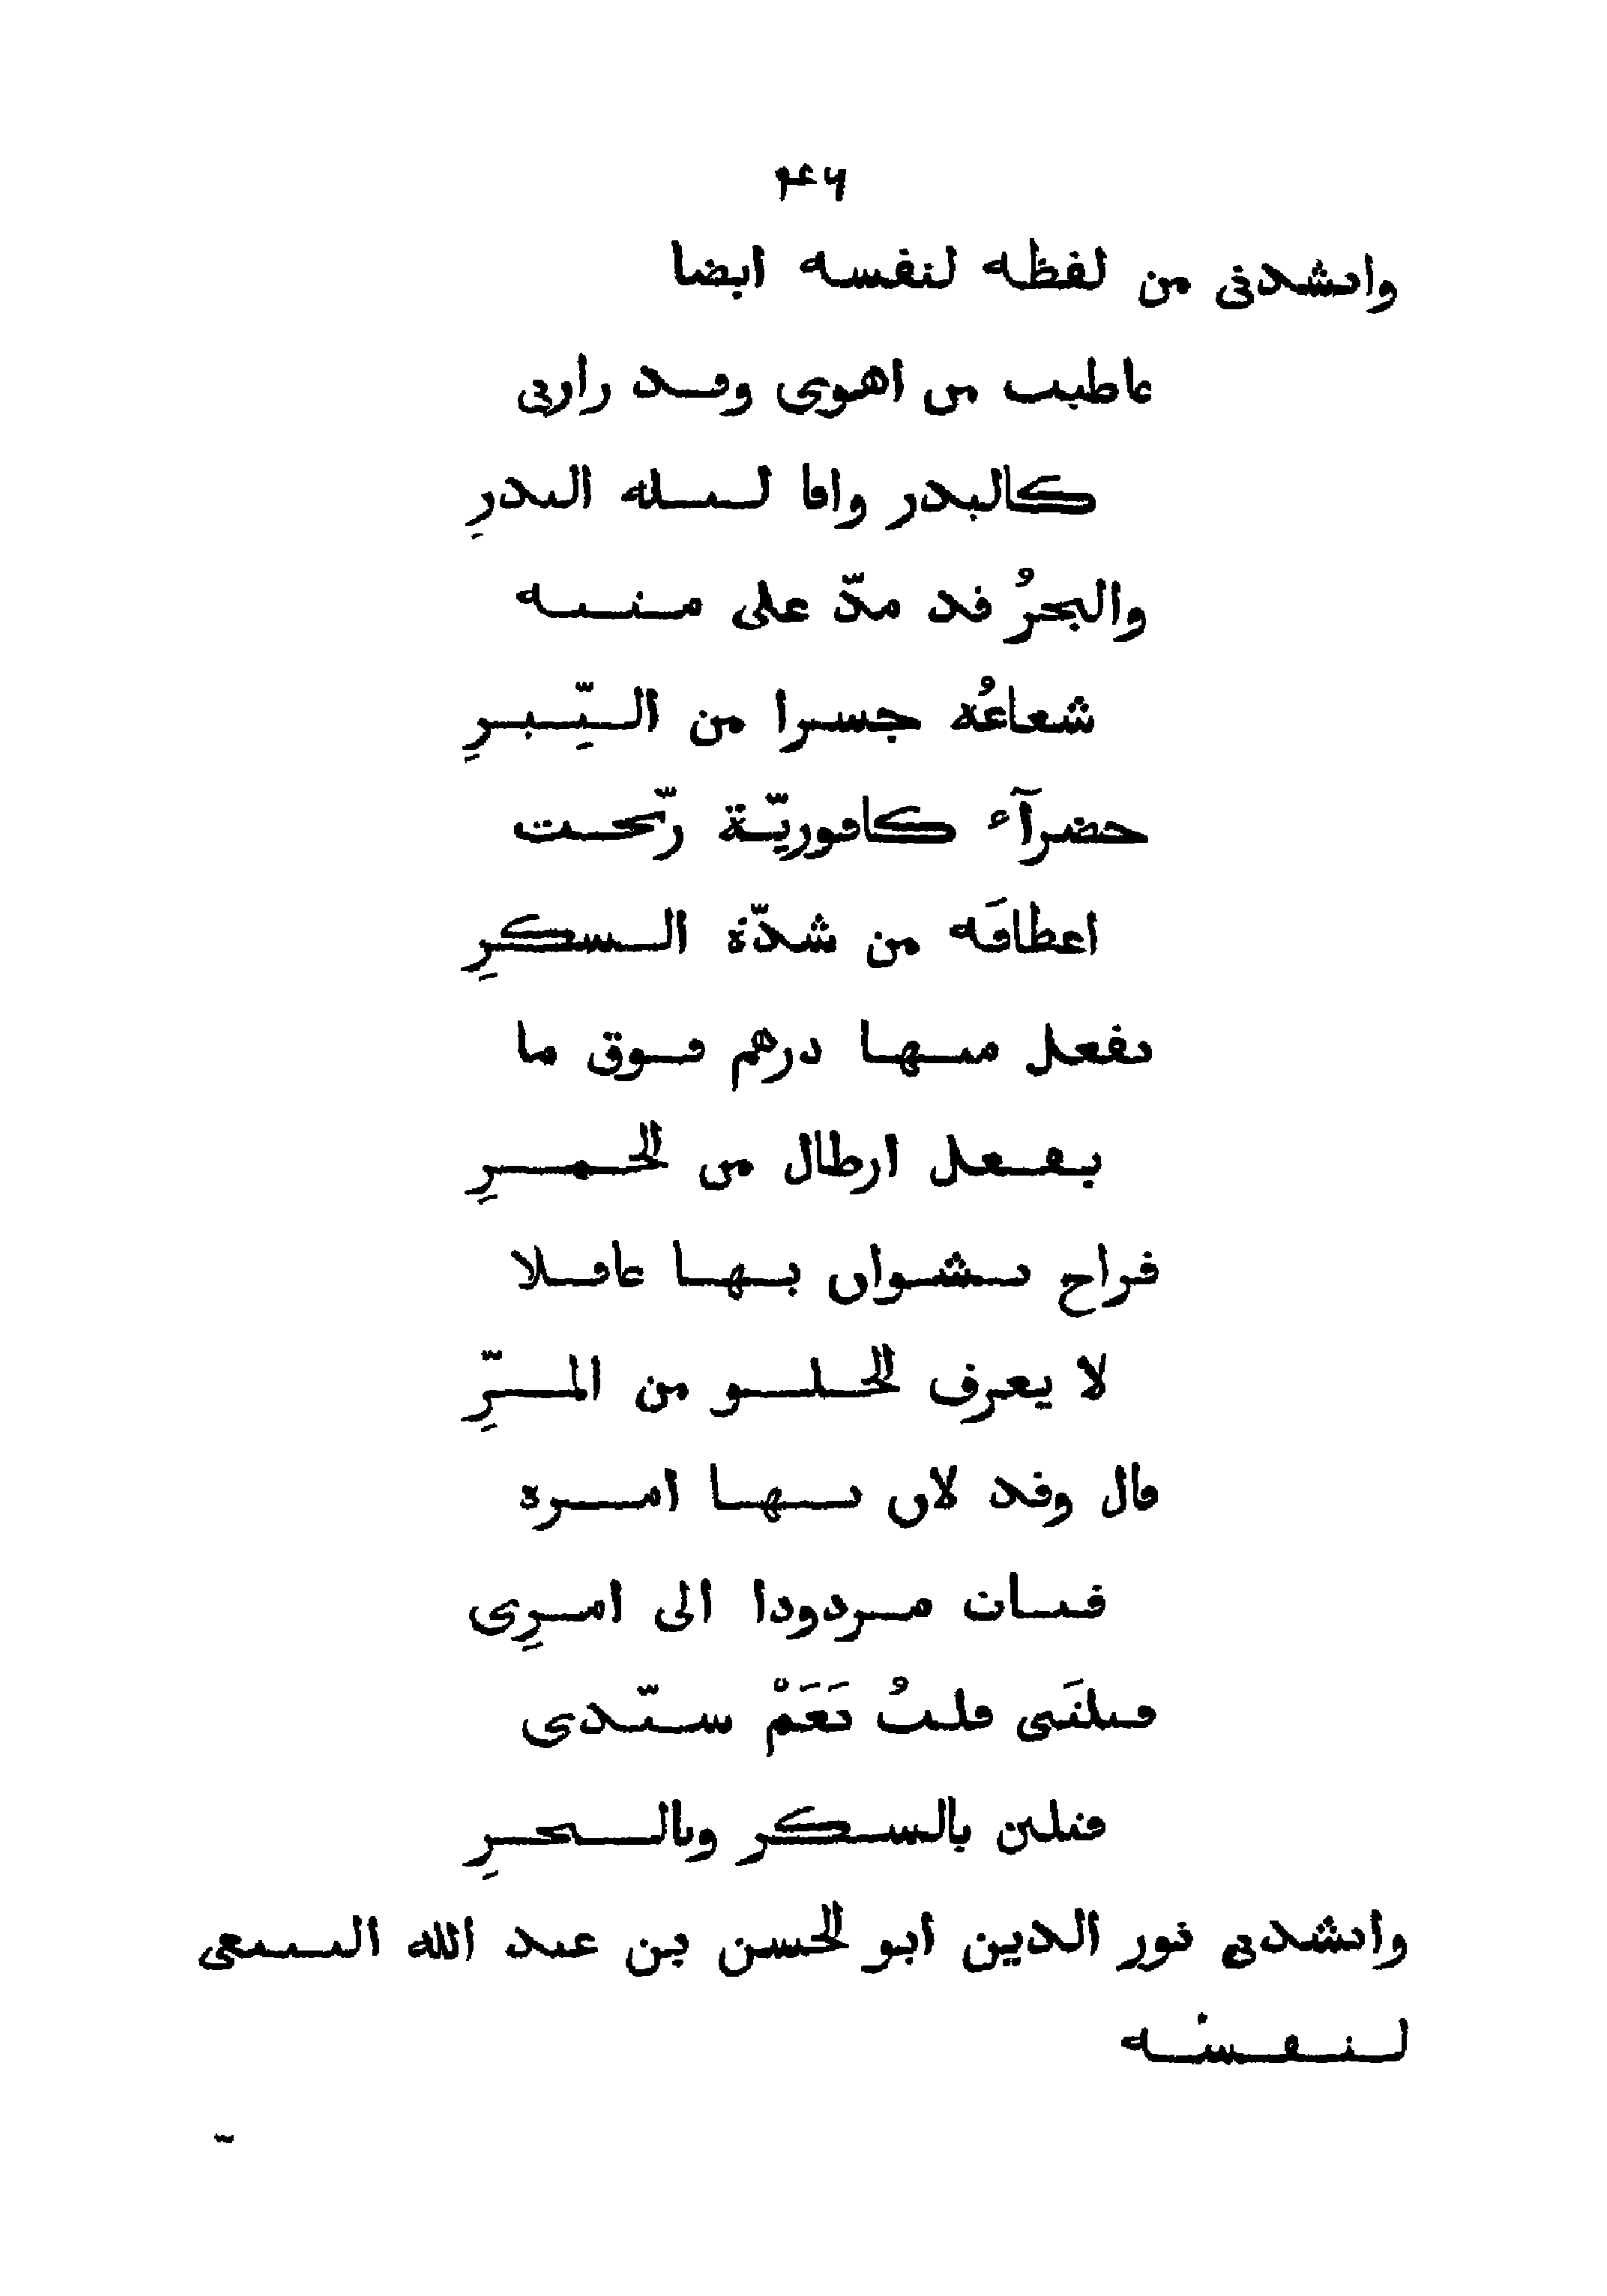 ٢٤٦
وانشدنى من لفظه لنفسه ايضا
عاطيت من اهوى وقد زارنى
كالبدر وافا ليلة البدرِ
والبحرُ قد مدّ على متنه
شعاعُه جسرا من التِّبرِ
خضرآء كافوريّة رنّحت
اعطافَه من شدّة السكرِ
تفعل منها درهم فوق ما
يفعل ارطال من الخمرِ
فراح نشوان بها غافلا
لا يعرف الحلو من المرِّ
قال وقد لان بها امره
فبات مردودا الى امرِى
قتلتَنى قلتُ نَعَمْ سيّدى
قتلين بالسكر وبالسحرِ
وانشدنى نور الدين ابو الحسن بن عبد الله
لنفسه